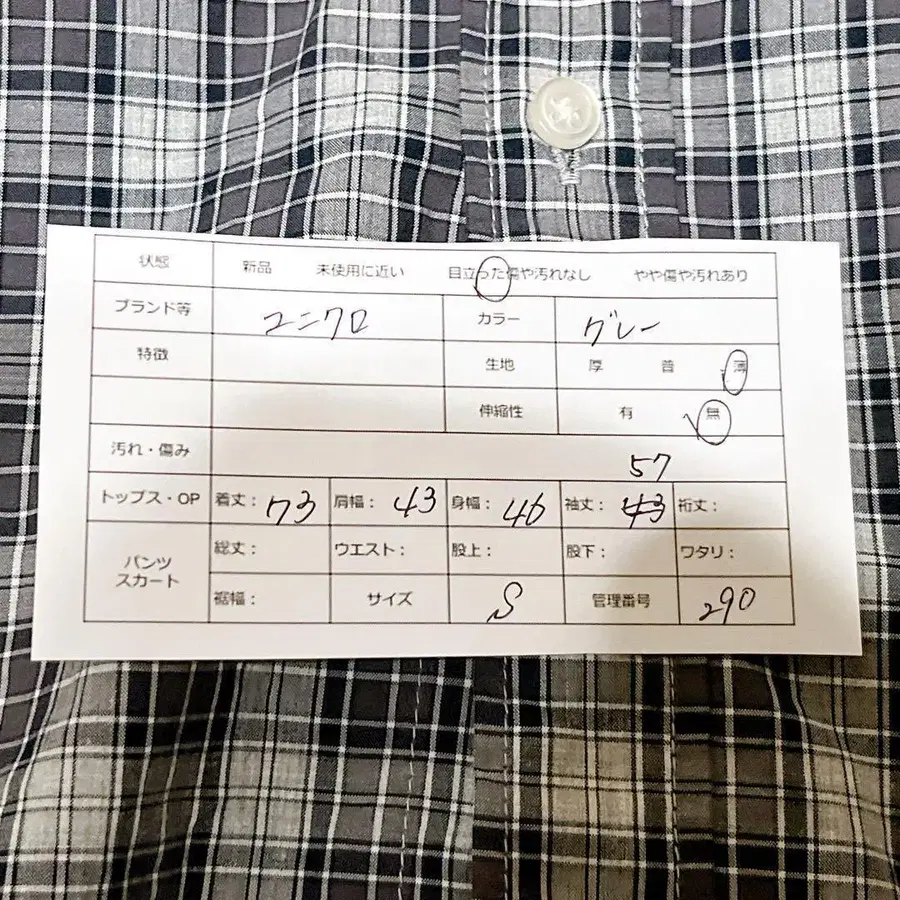 状態 新品 未使用に近い 目立った傷や汚れなし やや傷や汚れあり
ブランド等 ユニクロ カラー グレー
特徴 生地 厚 普 薄
伸縮性 有 無
汚れ・傷み
57
トップス・OP 着丈: 73 肩幅: 43 身幅: 46 袖丈: 43 裄丈:
パンツ スカート 総丈: ウエスト: 股上: 股下: ワタリ:
裾幅: サイズ S 管理番号 290